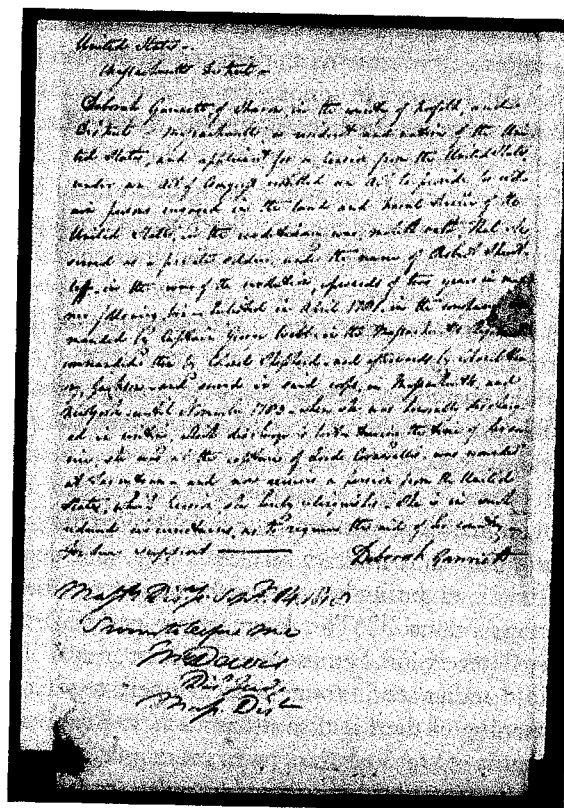 United States
Massachusetts District
Deborah Gannett of Sharon, in the county of Norfolk, and
District of Massachusetts a resident and native of the Uni
ted States, and applicant for a pension from the United States
under an Act of Congress entitled an Act to provide for cer
tain persons engaged in the land and naval service of the
United States, in the revolutionary war, maketh oath That she
served as a private soldier, under the name of Robert Shurt
leff, in the war of the revolution, upwards of two years in man
ner following, viz - Enlisted in April 1781, in the company com
manded by Captain George Webb in the Massachusetts Regiment
commanded then by Colonel Shepherd - and afterwards by Colonel Hen
ry Jackson - and served in said corps, in Massachusetts, and
New York - until November 1783 - when she was honorably discharg
ed in writing, which discharge is lost - During the time of her ser
vice, she was at the capture of Lord Cornwallis, was wounded
at Tarrytown - and now receives a pension from the United
States, which pension she hereby relinquishes. She is in such
reduced circumstances, as to require the aid of her country -
for her support
Deborah Gannett
Mass Dis Sept. 14. 1818
Sworn to before me
J Davis
Dis Judge
Mass Dis